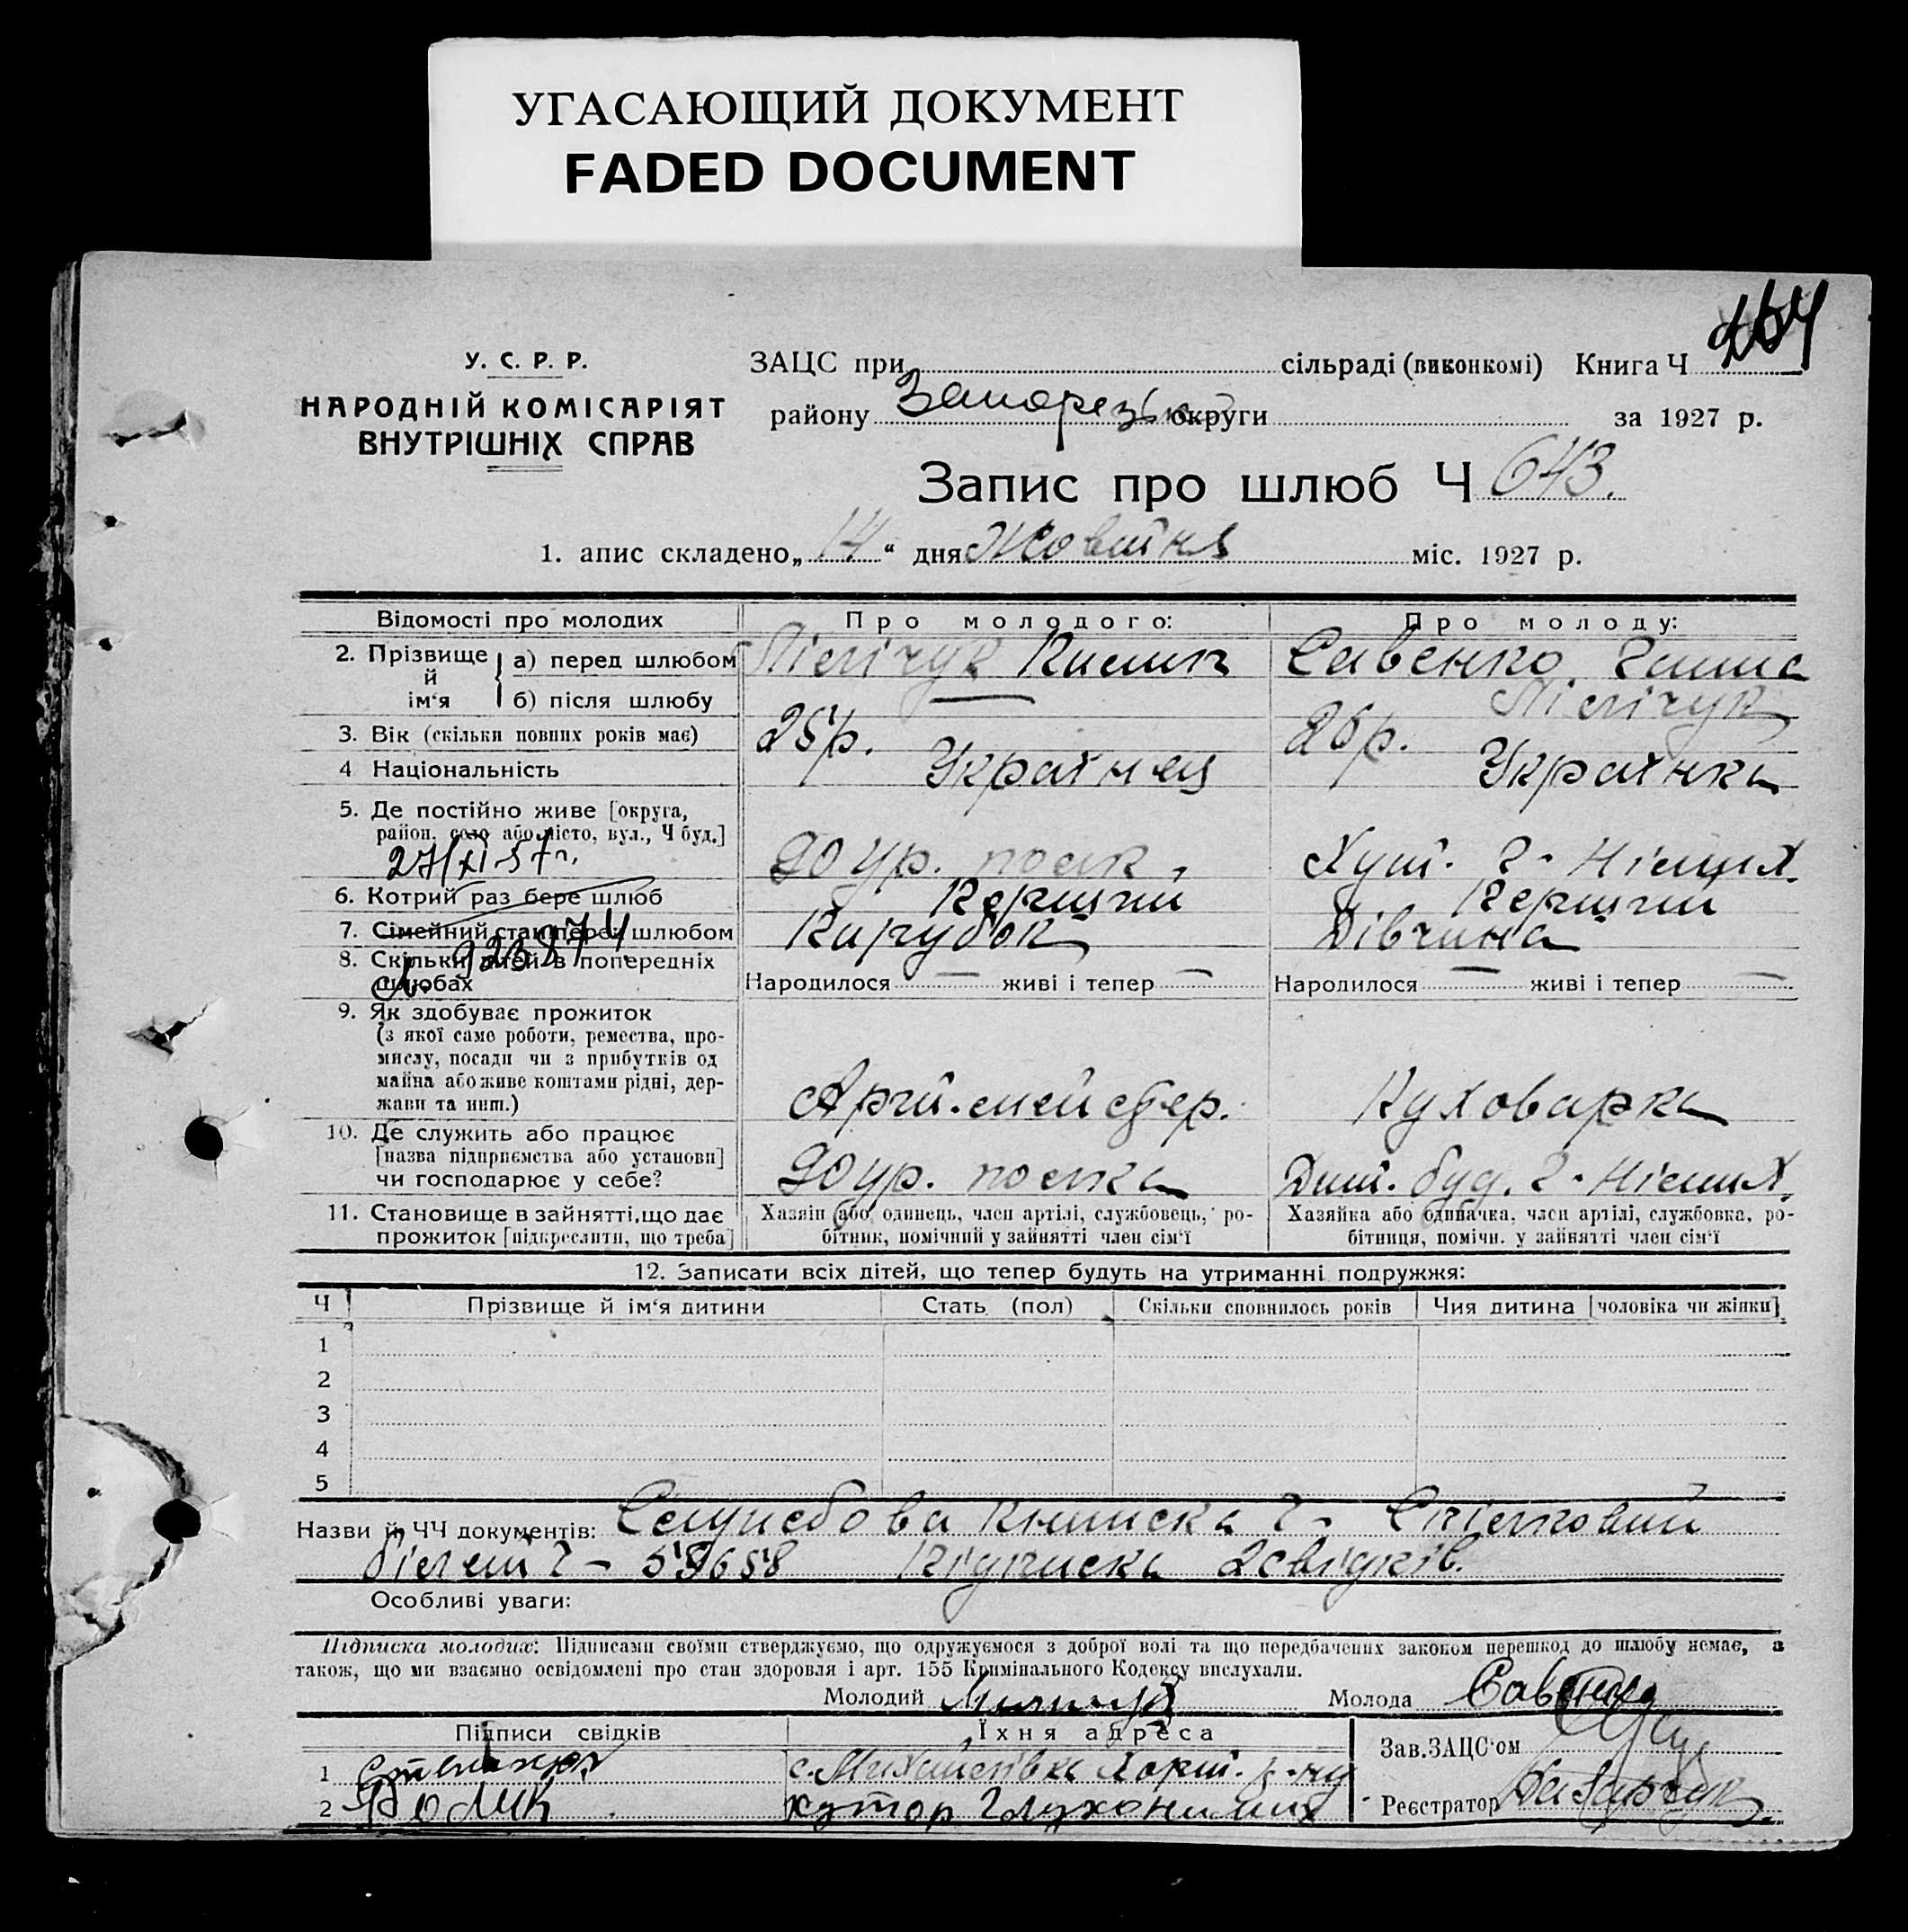 УГАСАЮЩИЙ ДОКУМЕНТ
FADED DOCUMENT
У. С. Р. Р.
НАРОДНІЙ КОМІСАРІЯТ
ВНУТРІШНІХ СПРАВ
ЗАЦС при сільраді (виконкомі) Книга Ч
району округи за 1927 р.
Запис про шлюб Ч 643.
1. апис складено „14“ дня Жовтня міс. 1927 р.
Відомості про молодих
Про молодого:
Про молоду:
2. Прізвище й ім'я
а) перед шлюбом
Савенко
б) після шлюбу
3. Вік (скільки повних років має)
25 р.
26 р.
4 Національність
Українец
Українка
5. Де постійно живе [округа, район, село або місто, вул., Ч буд.]
90 ур. полк
Хут. Г-Німих.
6. Котрий раз бере шлюб
Перший
Перший
7. Сімейний стан перед шлюбом
Парубок
Дівчина
8. Скільки дітей в попередніх шлюбах
Народилося — живі і тепер —
Народилося — живі і тепер —
9. Як здобуває прожиток
(з якої саме роботи, ремества, про-
мислу, посади чи з прибутків од
майна або живе коштами рідні, дер-
жави та инш.)
Куховарка
10. Де служить або працює
[назва підприємства або установи]
чи господарює у себе?
90 ур. полка
Дит. буд. Г-Німих.
11. Становище в зайнятті, що дає
прожиток [підкреслити, що треба]
Хазяін або одинець, член артілі, службовець, ро-
бітник, помічний у зайнятті член сім'ї
Хазяйка або одиначка, член артілі, службовка, ро-
бітниця, помічн. у зайнятті член сім'ї
12. Записати всіх дітей, що тепер будуть на утриманні подружжя:
Ч
Прізвище й ім'я дитини
Стать (пол)
Скільки сповнилось років
Чия дитина [чоловіка чи жінки]
1
2
3
4
5
Назви й ЧЧ документів: Службова книжка Ч- Спілковий
білет Ч- 59658 Підписка 2 свідків.
Особливі уваги:
Підписка молодих: Підписами своїми стверджуємо, що одружуємося з доброї волі та що передбачених законом перешкод до шлюбу немає, а
також, що ми взаємно освідомлені про стан здоровля і арт. 155 Кримінального Кодексу вислухали.
Молодий
Молода
Підписи свідків
Їхня адреса
Зав. ЗАЦС'ом
1
с. Михайлівка Хорт. р-ну
2
хутор Глухонимих
Реєстратор